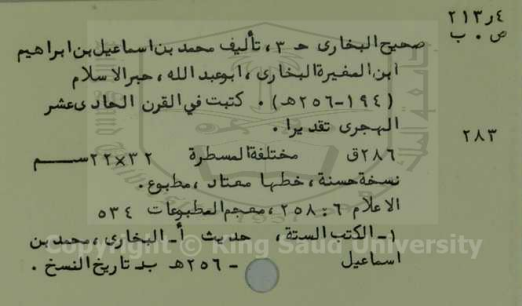 ٢١٣٫٤
ص ٠ ب
صحيح البخارى ح ٣ ، تأليف محمد بن اسماعيل بن ابراهيم
ابن المغيرة البخارى ، ابوعبد الله ، حبر الاسلام
(١٩٤-٢٥٦هـ) ٠ كتبت في القرن الحادى عشر
الهجرى تقديرا ٠
٢٨٣
٢٨٦ق مختلفة المسطرة ٣٢×٢٢ســم
نسخة حسنة ، خطها معتاد ، مطبوع ٠
الاعلام ٦ : ٢٥٨ ، معجم المطبوعات ٥٣٤
١- الكتب الستة ، حديث أ- البخارى ، محمد بن
اسماعيل - ٢٥٦هـ بـ تاريخ النسخ ٠
Copyright © King Saud University